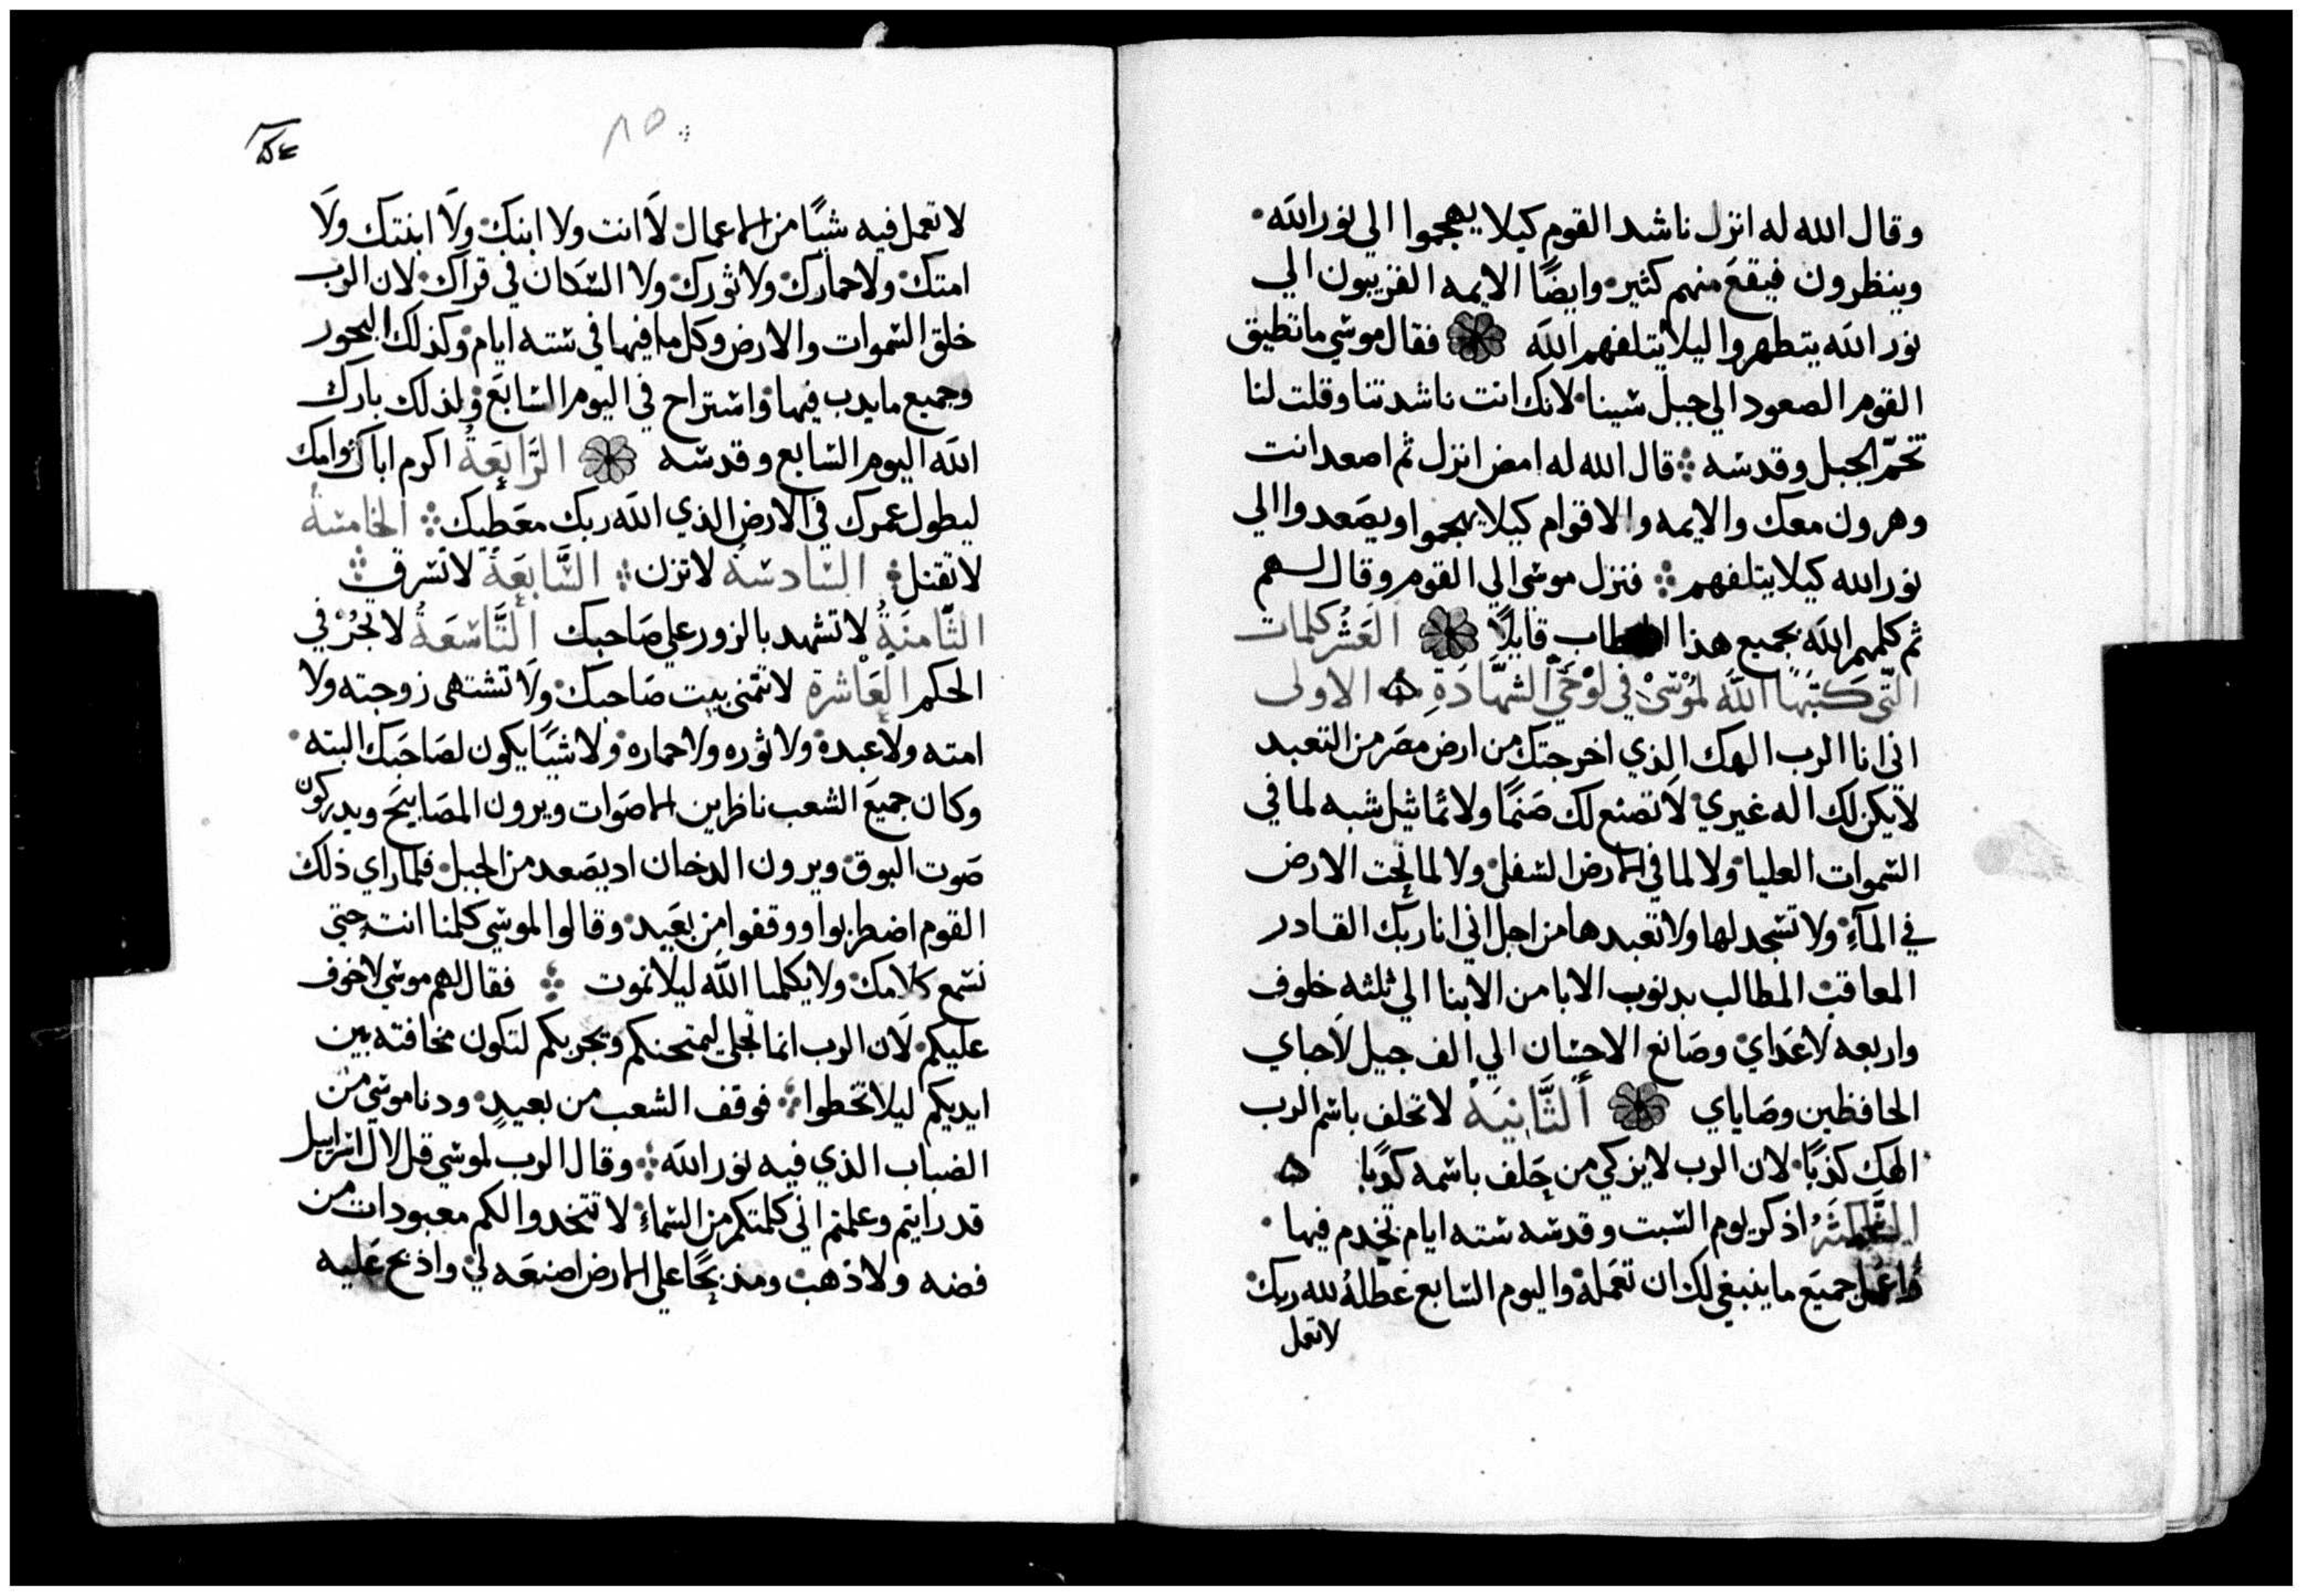 وقال الله له انزل ناشد القوم كيلا يهجموا الي نور الله
وينظرون فيقع منهم كثير وايضًا الايمه القريبون الي
نور الله يتطهروا ليلا يتلفهم الله فقال موسي ما تطيق
القوم الصعود الي جبل سينا لانك انت ناشدتنا وقلت لنا
تحمّ الجبل وقدسه قال الله له امض انزل ثم اصعد انت
وهرون معك والايمه والاقوام كيلا يهجموا ويصعدوا الي
نور الله كيلا يتلفهم فنزل موسى الي القوم وقال لهم
ثم كلمهم الله بجميع هذا الخطاب قايلًا العَشْر كلمات
التّي كتَبهَا اللّه لمُوْسَىْ في لوْحَيّ الشَّهَادَةِ الاولى
اني انا الرب الهك الذي اخرجتك من ارض مصر من التعبد
لا يكن لك اله غيري لا تصنع لك صَنمًا ولا تماثيل شبه لما في
السموات العليا ولا لما في الارض السفلي ولا لما تحت الارض
في المآءِ ولا تسجد لها ولا تعبدها من اجل اني انا ربك القادر
المعاقب المطالب بدنوب الابا من الابنا الي ثلثه خلوف
واربعه لاعَداي وصَانع الاحسان الي الف جيل لاحباي
الحافظين وصَاياي أَلثَّانِيَةُ لا تحلف باسم الرب
الهك كذبًا لان الرب لا يزكي من حَلف باسمه كدبًا
الثَّالِثَةُ اذكر يوم السبت وقدسه سته ايام تخدم فيها
واعمل جميَع ما ينبغي لك ان تعَمله واليوم السابع عطلهُ لله ربك
لا تعمل
٨٥
لا تعمل فيه شيًا من الاعمال لا انت ولا ابنك ولا ابنتك ولا
امتك ولا حمارك ولا ثورك ولا السكان في قراك لان الرب
خلق السموات والارض وكل ما فيها في سته ايام وكذلك البحور
وجميع ما يدب فيها واستراح في اليوم السابع ولذلك بارك
الله اليوم السابع وقدسه الرَّابِعَةُ اكرم اباك وامك
ليطول عمرك في الارض الذي الله ربك معَطيك الخامسَةُ
لا تقتل السَادسَةُ لا تزن السَّابعَةُ لا تسرق
الثَّامنَةُ لا تشهد بالزور علي صَاحبك أَلتَّاسعَةُ لا تجُرْ في
الحكم العَاشرة لا تتمنى بيت صَاحبك ولا تشتهى زوجته ولا
امته ولا عبده ولا ثوره ولا حماره ولا شيًا يكون لصَاحَبك البته
وكان جميَع الشعب ناظرين الاصَوات ويرون المصَابيَح ويدركون
صَوت البوق ويرون الدخان اد يصَعد من الجبل فلما راي ذلك
القوم اضطربوا ووقفوا من بعَيد وقالوا لموسي كلمنا انت حتي
نسمع كلامك ولا يكلمنا اللّه ليلا نموت فقال لهم موسي لا خوف
عليكم لان الرب انما تجلى ليمتحنكم ويجربكم لتكون مخافته بين
ايديكم ليلا تخطوا فوقف الشعب من بعيدٍ ودنا موسي من
الضباب الذي فيه نور الله وقال الرب لموسي قل لال اسرايل
قد رايتم وعلمتم اني كلمتكم من السماء لا تتخدوا لكم معبودات من
فضه ولا ذهب ومذبحًا علي الارض اصنعَه لي واذبح عَليه